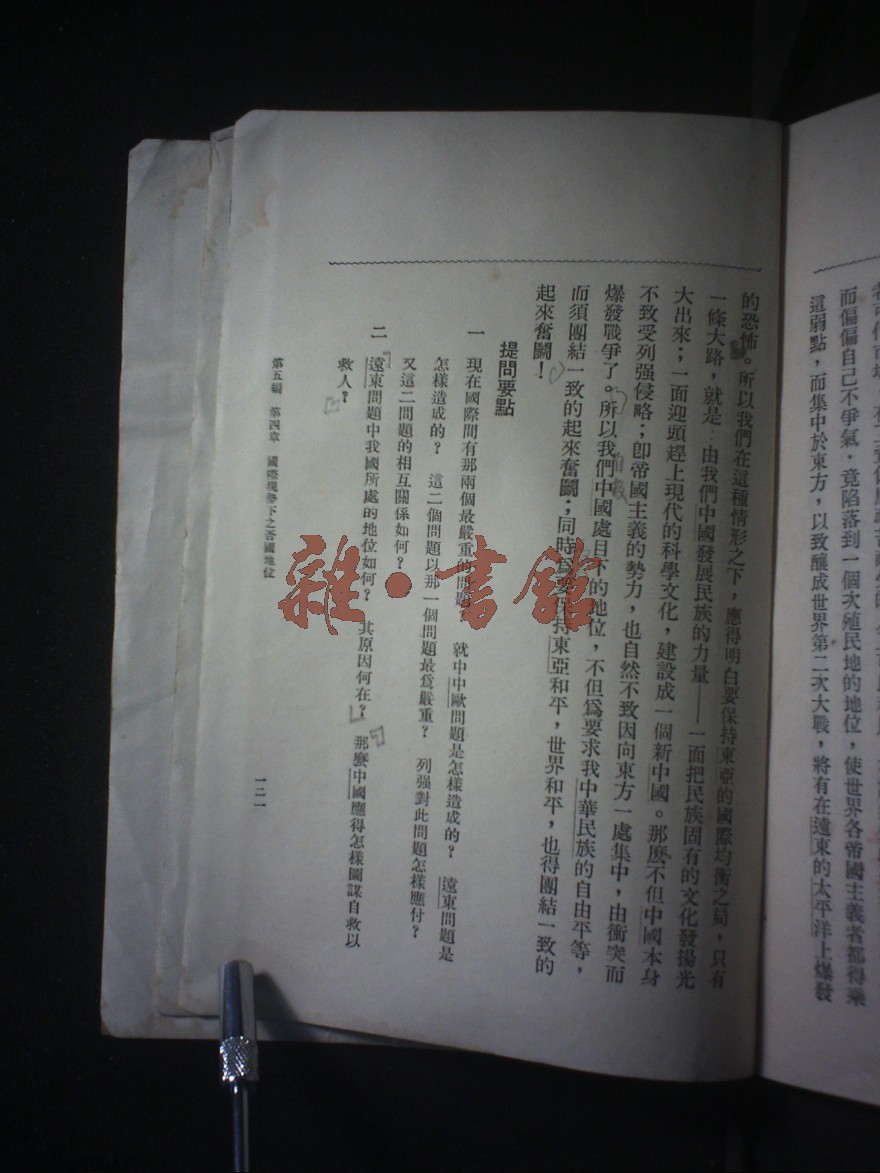 而偏偏自己不爭氣，竟陷落到一個次殖民地的地位，使世界各帝國主義者都得乘
這弱點，而集中於東方，以致釀成世界第二次大戰，將有在遠東的太平洋上爆發
的恐怖。所以我們在這種情形之下，應得明白要保持東亞的國際均衡之局，只有
一條大路，就是：由我們中國發展民族的力量——一面把民族固有的文化發揚光
大出來；一面迎頭趕上現代的科學文化，建設成一個新中國。那麽不但中國本身
不致受列强侵略；卽帝國主義的勢力，也自然不致因向東方一處集中，由衝突而
爆發戰爭了。所以我們中國處目下的地位，不但爲要求我中華民族的自由平等，
而須團結一致的起來奮鬭；同時爲要保持東亞和平，世界和平，也得團結一致的
起來奮鬭！
提問要點
一　現在國際間有那兩個最嚴重的問題？　就中中歐問題是怎樣造成的？　遠東問題是
怎樣造成的？　這二個問題以那一個問題最爲嚴重？　列强對此問題怎樣應付？
又這二問題的相互關係如何？
二　遠東問題中我國所處的地位如何？　其原因何在？　那麽中國應得怎樣圖謀自救以
救人？
第五編　第四章　國際現勢下之吾國地位
一二一
雜·書館